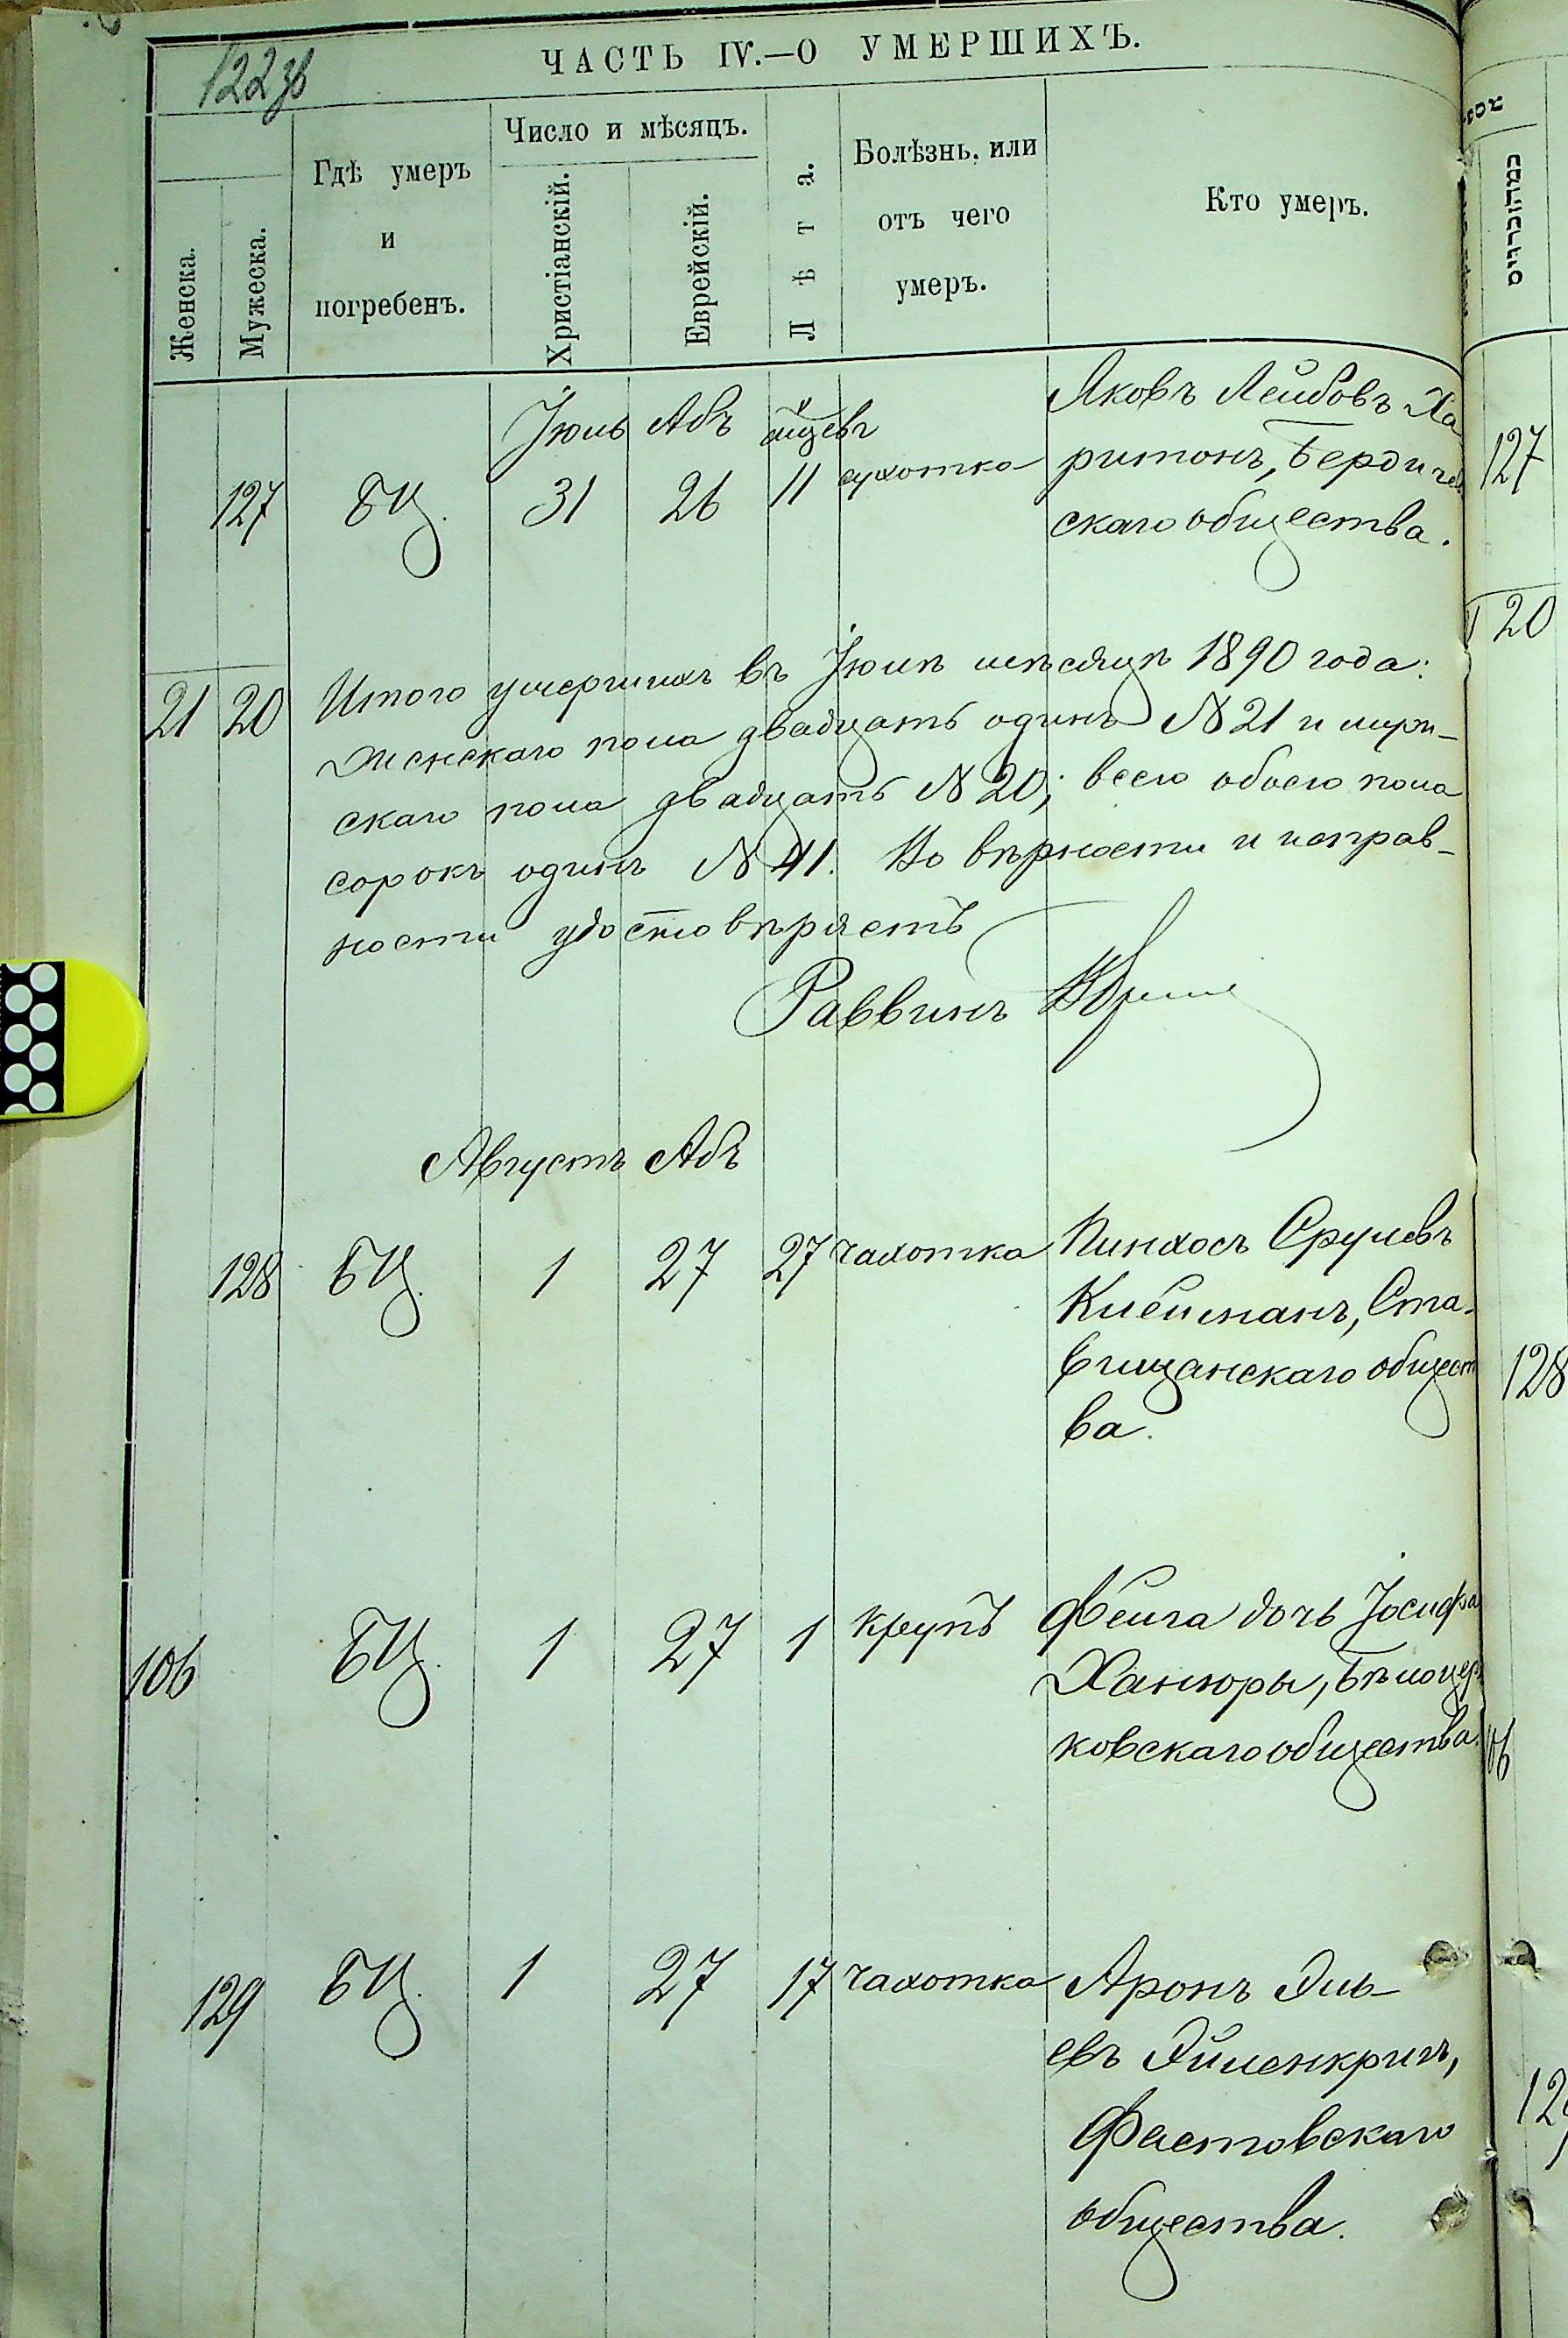 122 зв
ЧАСТЬ IV.—О УМЕРШИХЪ.
Женска.
Мужеска.
Гдѣ умеръ
и
погребенъ.
Число и мѣсяцъ.
Христіанскій.
Еврейскій.
Лѣта.
Болѣзнь, или
отъ чего
умеръ.
Кто умеръ.
Іюль Абъ м-цевъ
127 БЦ. 31 26 11 сухотка
Яковъ Лейбовъ Ха
ритонъ, Бердичев
скаго общества.
21 20
Итого умершихъ въ Іюлѣ мѣсяцѣ 1890 года:
женскаго пола двадцать одинъ N 21 и муж-
скаго пола двадцать N 20; всего обоего пола
сорокъ одинъ N 41. Во вѣрности и исправ-
ности удостовѣряетъ
Раввинъ
Августъ Абъ
128 БЦ. 1 27 27 чахотка
Пинхосъ Срулевъ
Клейманъ, Ста-
вищанскаго общест
ва.
106 БЦ. 1 27 1 крупъ
Фейга дочь Іосифа
Ханюры, Бѣлоцер
ковскаго общества.
129 БЦ. 1 27 17 чахотка
Аронъ Эль-
евъ Эйленкригъ,
Фастовскаго
общества.
127
20
128
106
129